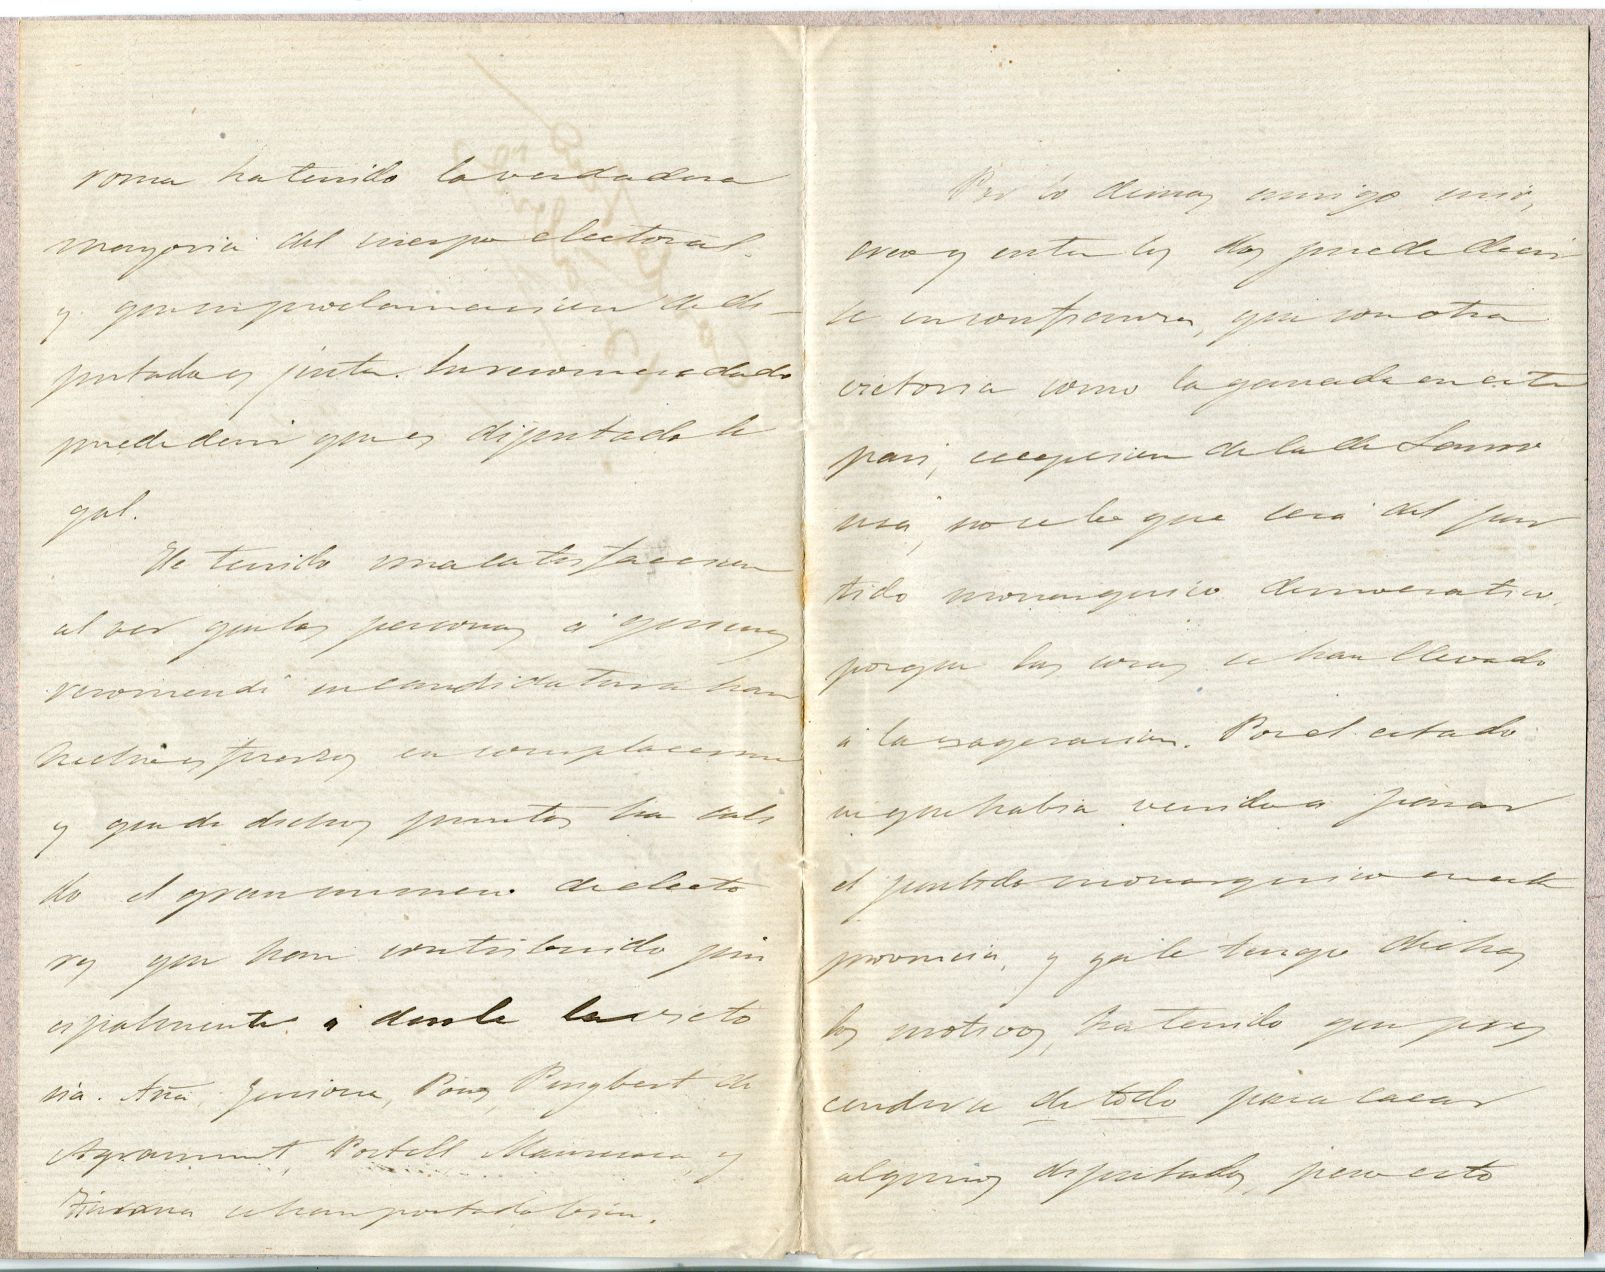 roma ha tenido la verdadera
mayoria del cuerpo electoral.
y que su proclamacion de di-
putado es justa. Su recomendado
puede decir que es diputado le
gal.
He tenido una satisfaccion
al ver que las personas á quienes
recomendé su candidatura han
hecho esfuerzos en complacerme
y que de dichos puntos ha sali
do el gran numero de electo
res que han contribuido prin
cipalmente á darle la victo
ria. Aña, Pons, Puigbert de
Agramunt, Portell Manresana, y
se han portado bien.
Por lo demas amigo mio,
creo y entre los dos puede decir
se en confianza, que con otra
victoria como la ganada en este
pais, escepcion de la de
no se lo que será del par
tido monarquico democratico,
porque las cosas se han llevado
á la exageracion. Por el estado
en que habia venido a parar
el partido monarquico en esta
provincia, y ya le tengo dichos
los motivos, ha tenido que pres
cendirse de todo para sacar
algunos diputados, pero esto